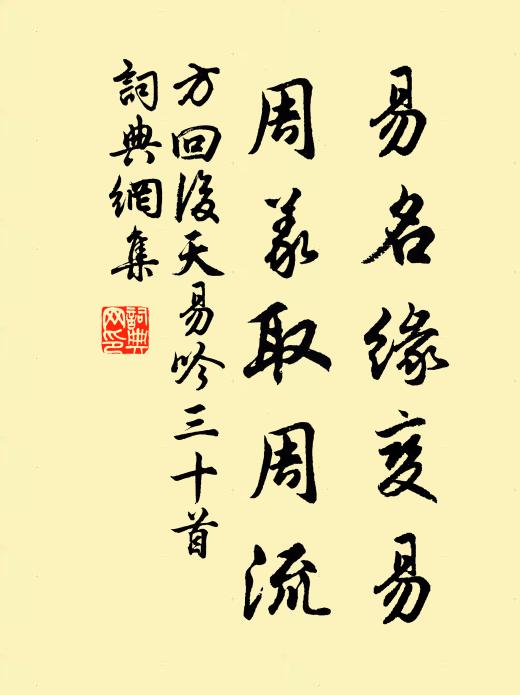 易名缘变易
周义取周流
方回後天易吟三十首
詞典網集
詞典网印